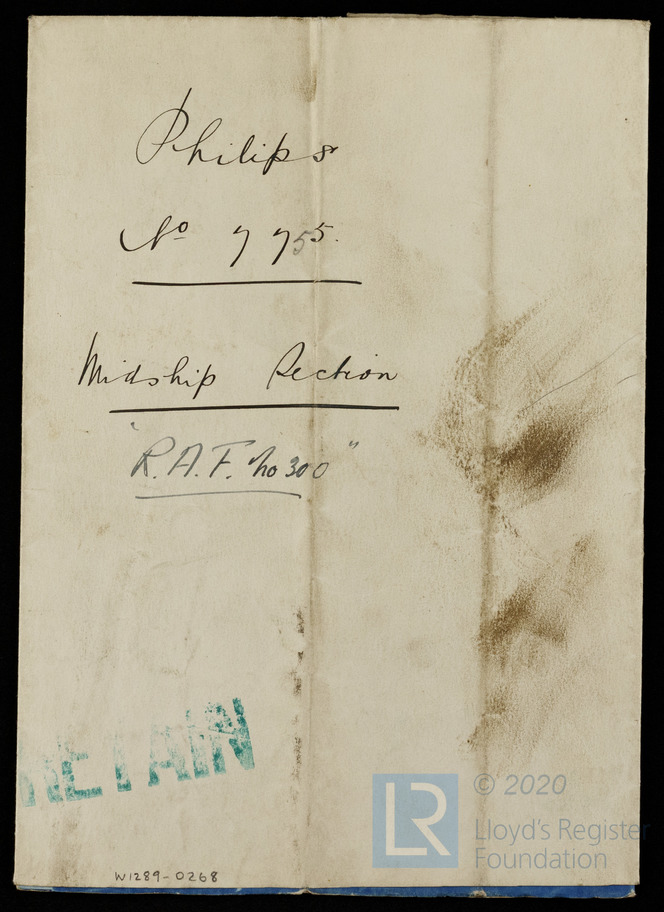 Philips
No 7755.
Midship Section
"R.A.F. No 300"
RETAIN
W1289-0268
LR
© 2020
Lloyd's Register
Foundation